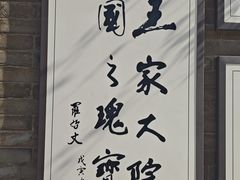 王家大院
國之瑰寶
羅哲文
戊寅